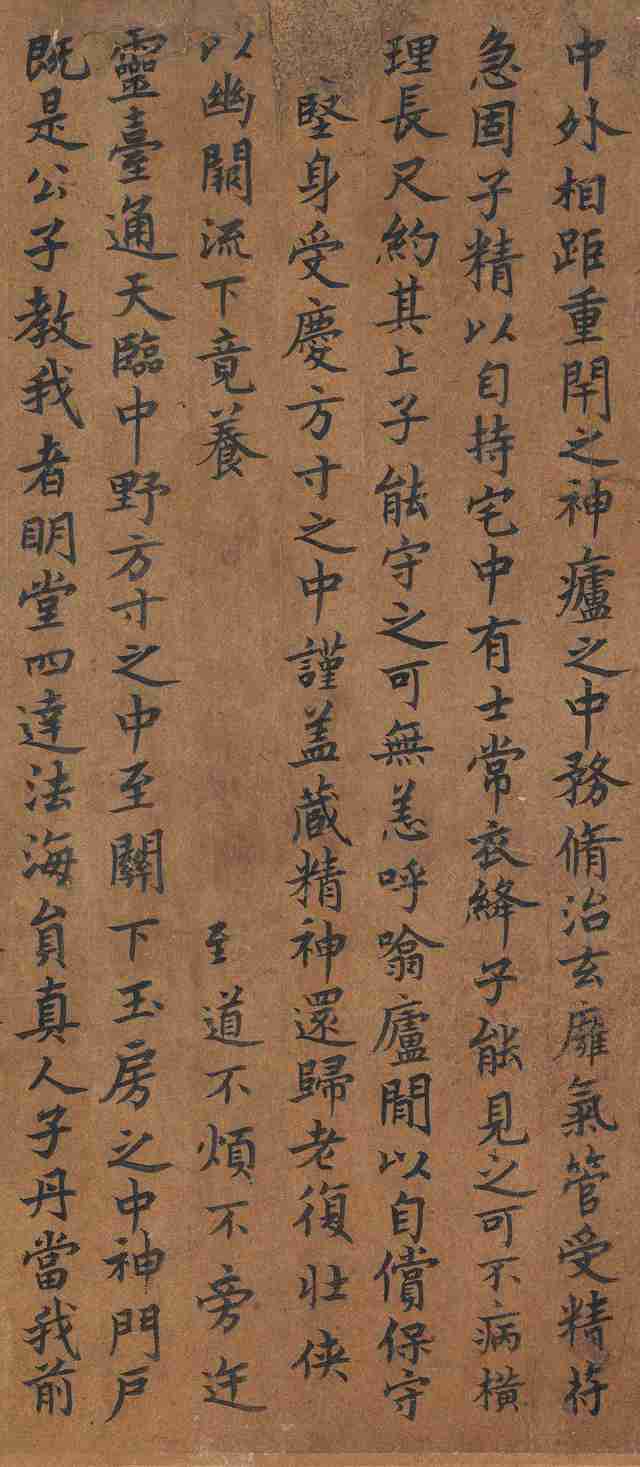 中外相距重閇之神廬之中務脩治玄廱氣管受精苻
急固子精以自持宅中有士常衣絳子能見之可不病橫
理長尺約其上子能守之可無恙呼噏廬閒以自償保守
堅身受慶方寸之中謹盖藏精神還歸老復壯侠
以幽闕流下竟養 至道不煩不旁迕
靈臺通天臨中野方寸之中至關下玉房之中神門戶
既是公子教我者明堂四達法海員真人子丹當我前